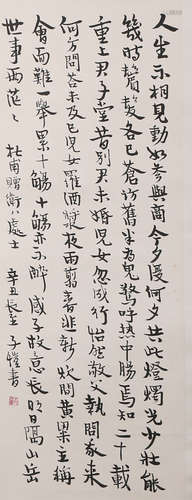 人生不相見動如參與商今夕復何夕共此燈燭光少壯能
幾時鬢髮各已蒼訪舊半為鬼驚呼熱中腸焉知二十載
重上君子堂昔別君未婚兒女忽成行怡然敬父執問我來
何方問答未及已兒女羅酒漿夜雨翦春韭新炊間黃粱主稱
會面難一舉累十觴十觴亦不醉感子故意長明日隔山岳
世事兩茫茫 杜甫贈衛八處士 辛丑長至 子愷書